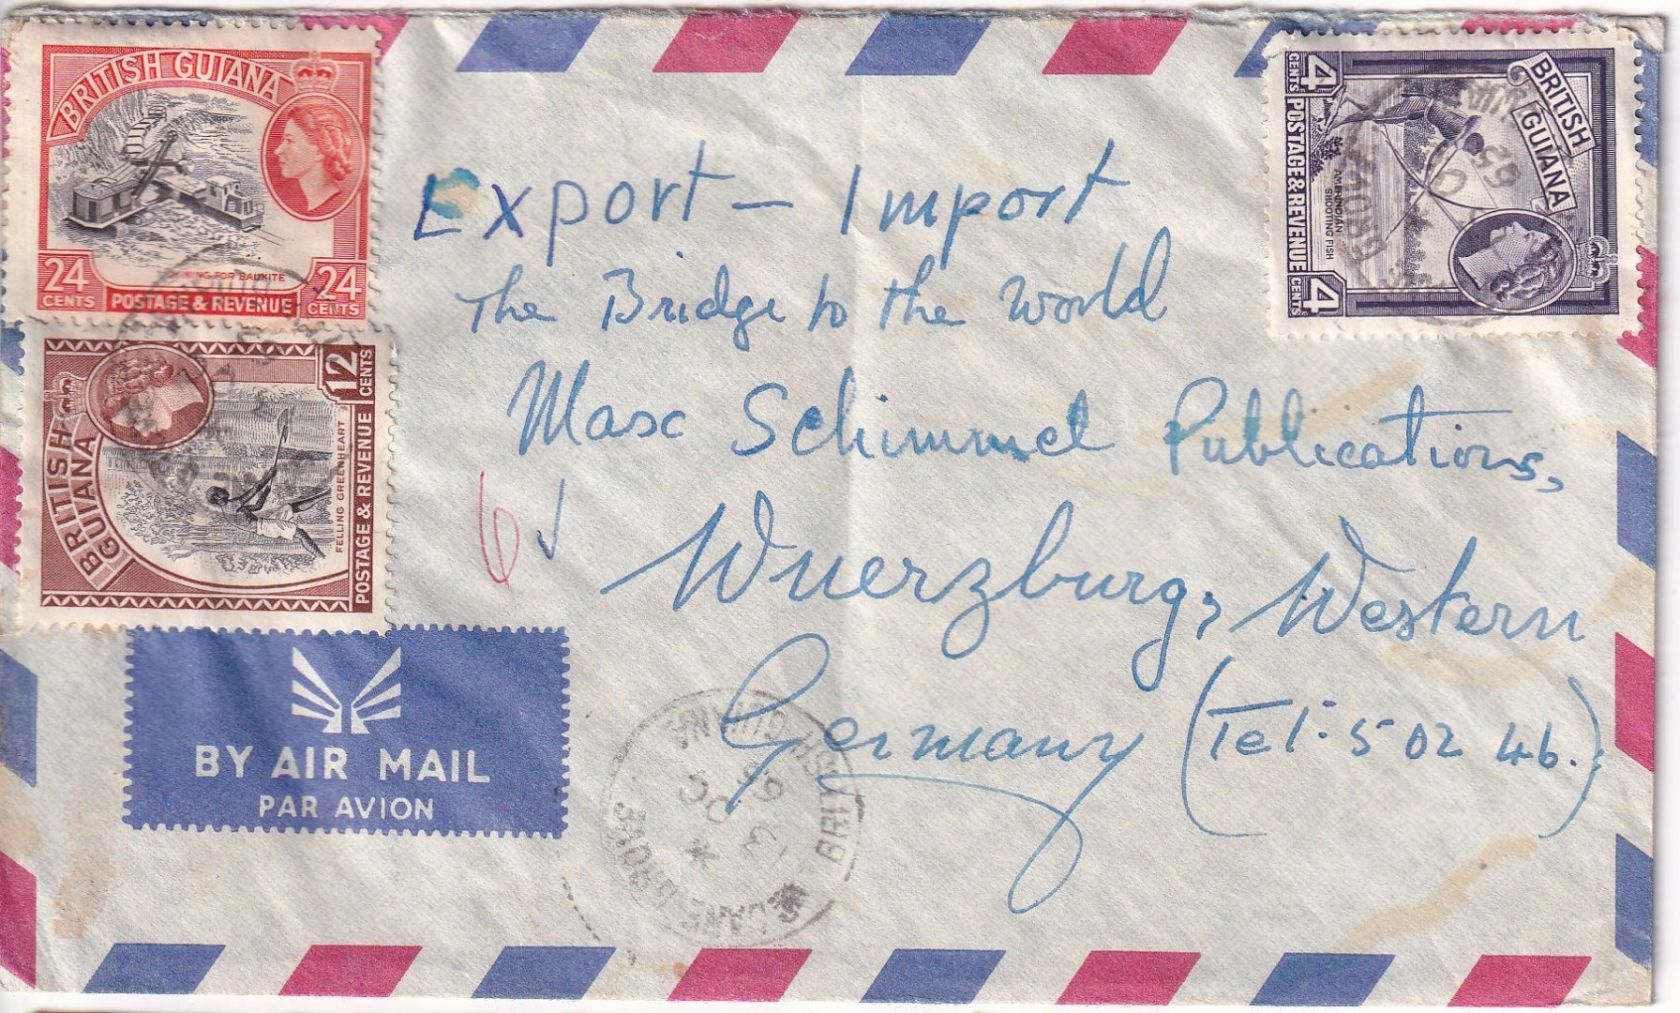 BRITISH GUIANA
MINING FOR BAUXITE
24 CENTS POSTAGE & REVENUE 24 CENTS
BRITISH GUIANA
12 CENTS
FELLING GREENHEART
POSTAGE & REVENUE
BRITISH GUIANA
AMERINDIAN SHOOTING FISH
4 CENTS POSTAGE & REVENUE 4 CENTS
Export - Import
The Bridge to the World
Max Schimmel Publications,
Wuerzburg, Western
Germany (Tel: 5 02 46.)
6
BY AIR MAIL
PAR AVION
CANE GROVE
13 OC
65
BRITISH GUIANA